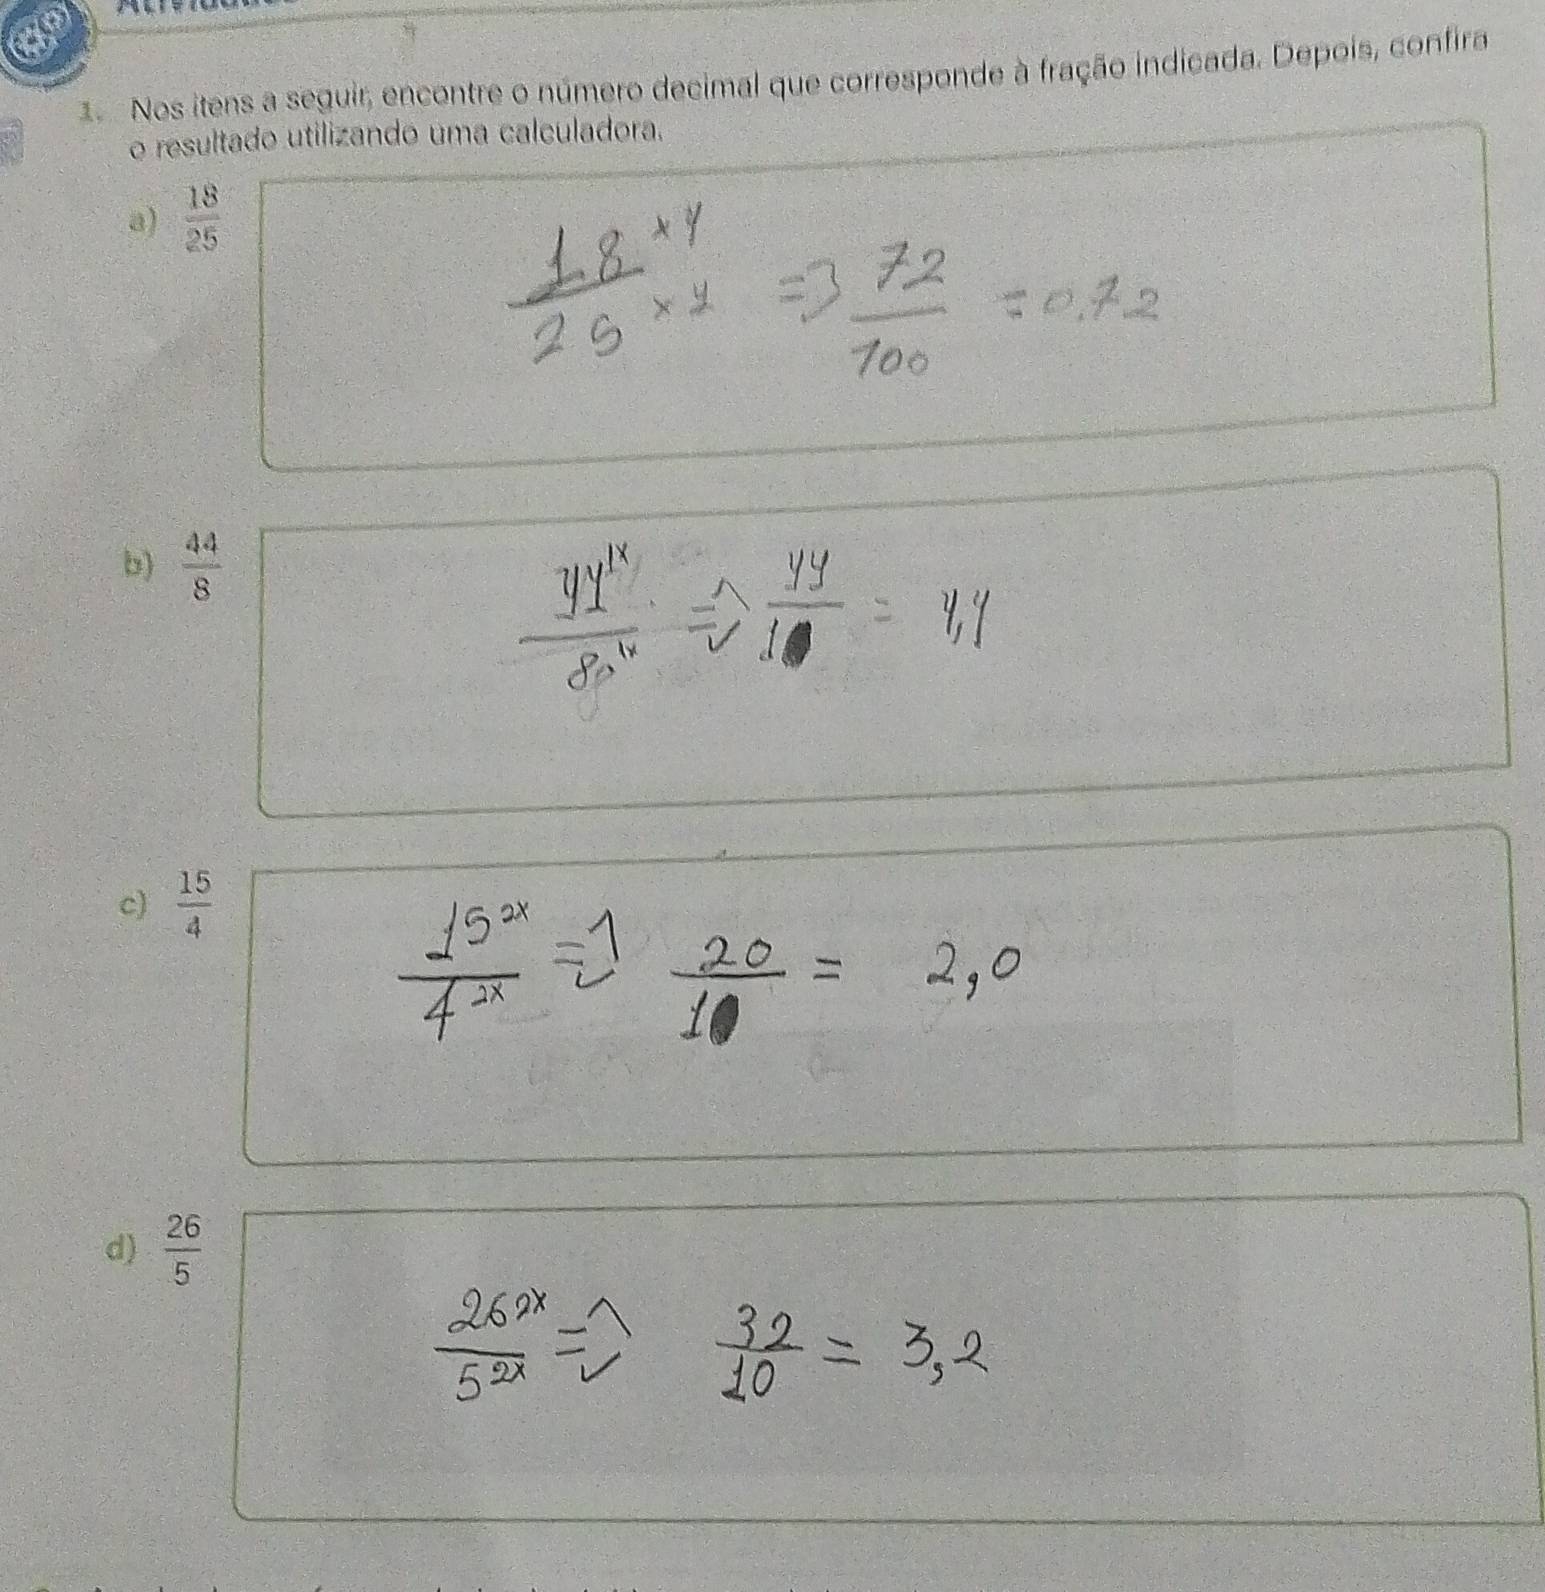 1. Nos itens a seguir, encontre o número decimal que corresponde à fração indicada. Depois, confira
o resultado utilizando uma calculadora.
a) 18/25
18 x 4 / 25 x 4 => 72/100 = 0.72
b) 44/8
44 1x / 8 1x => 44/10 = 4,4
c) 15/4
15 2x / 4 2x => 20/10 = 2,0
d) 26/5
26 2x / 5 2x => 32/10 = 3,2